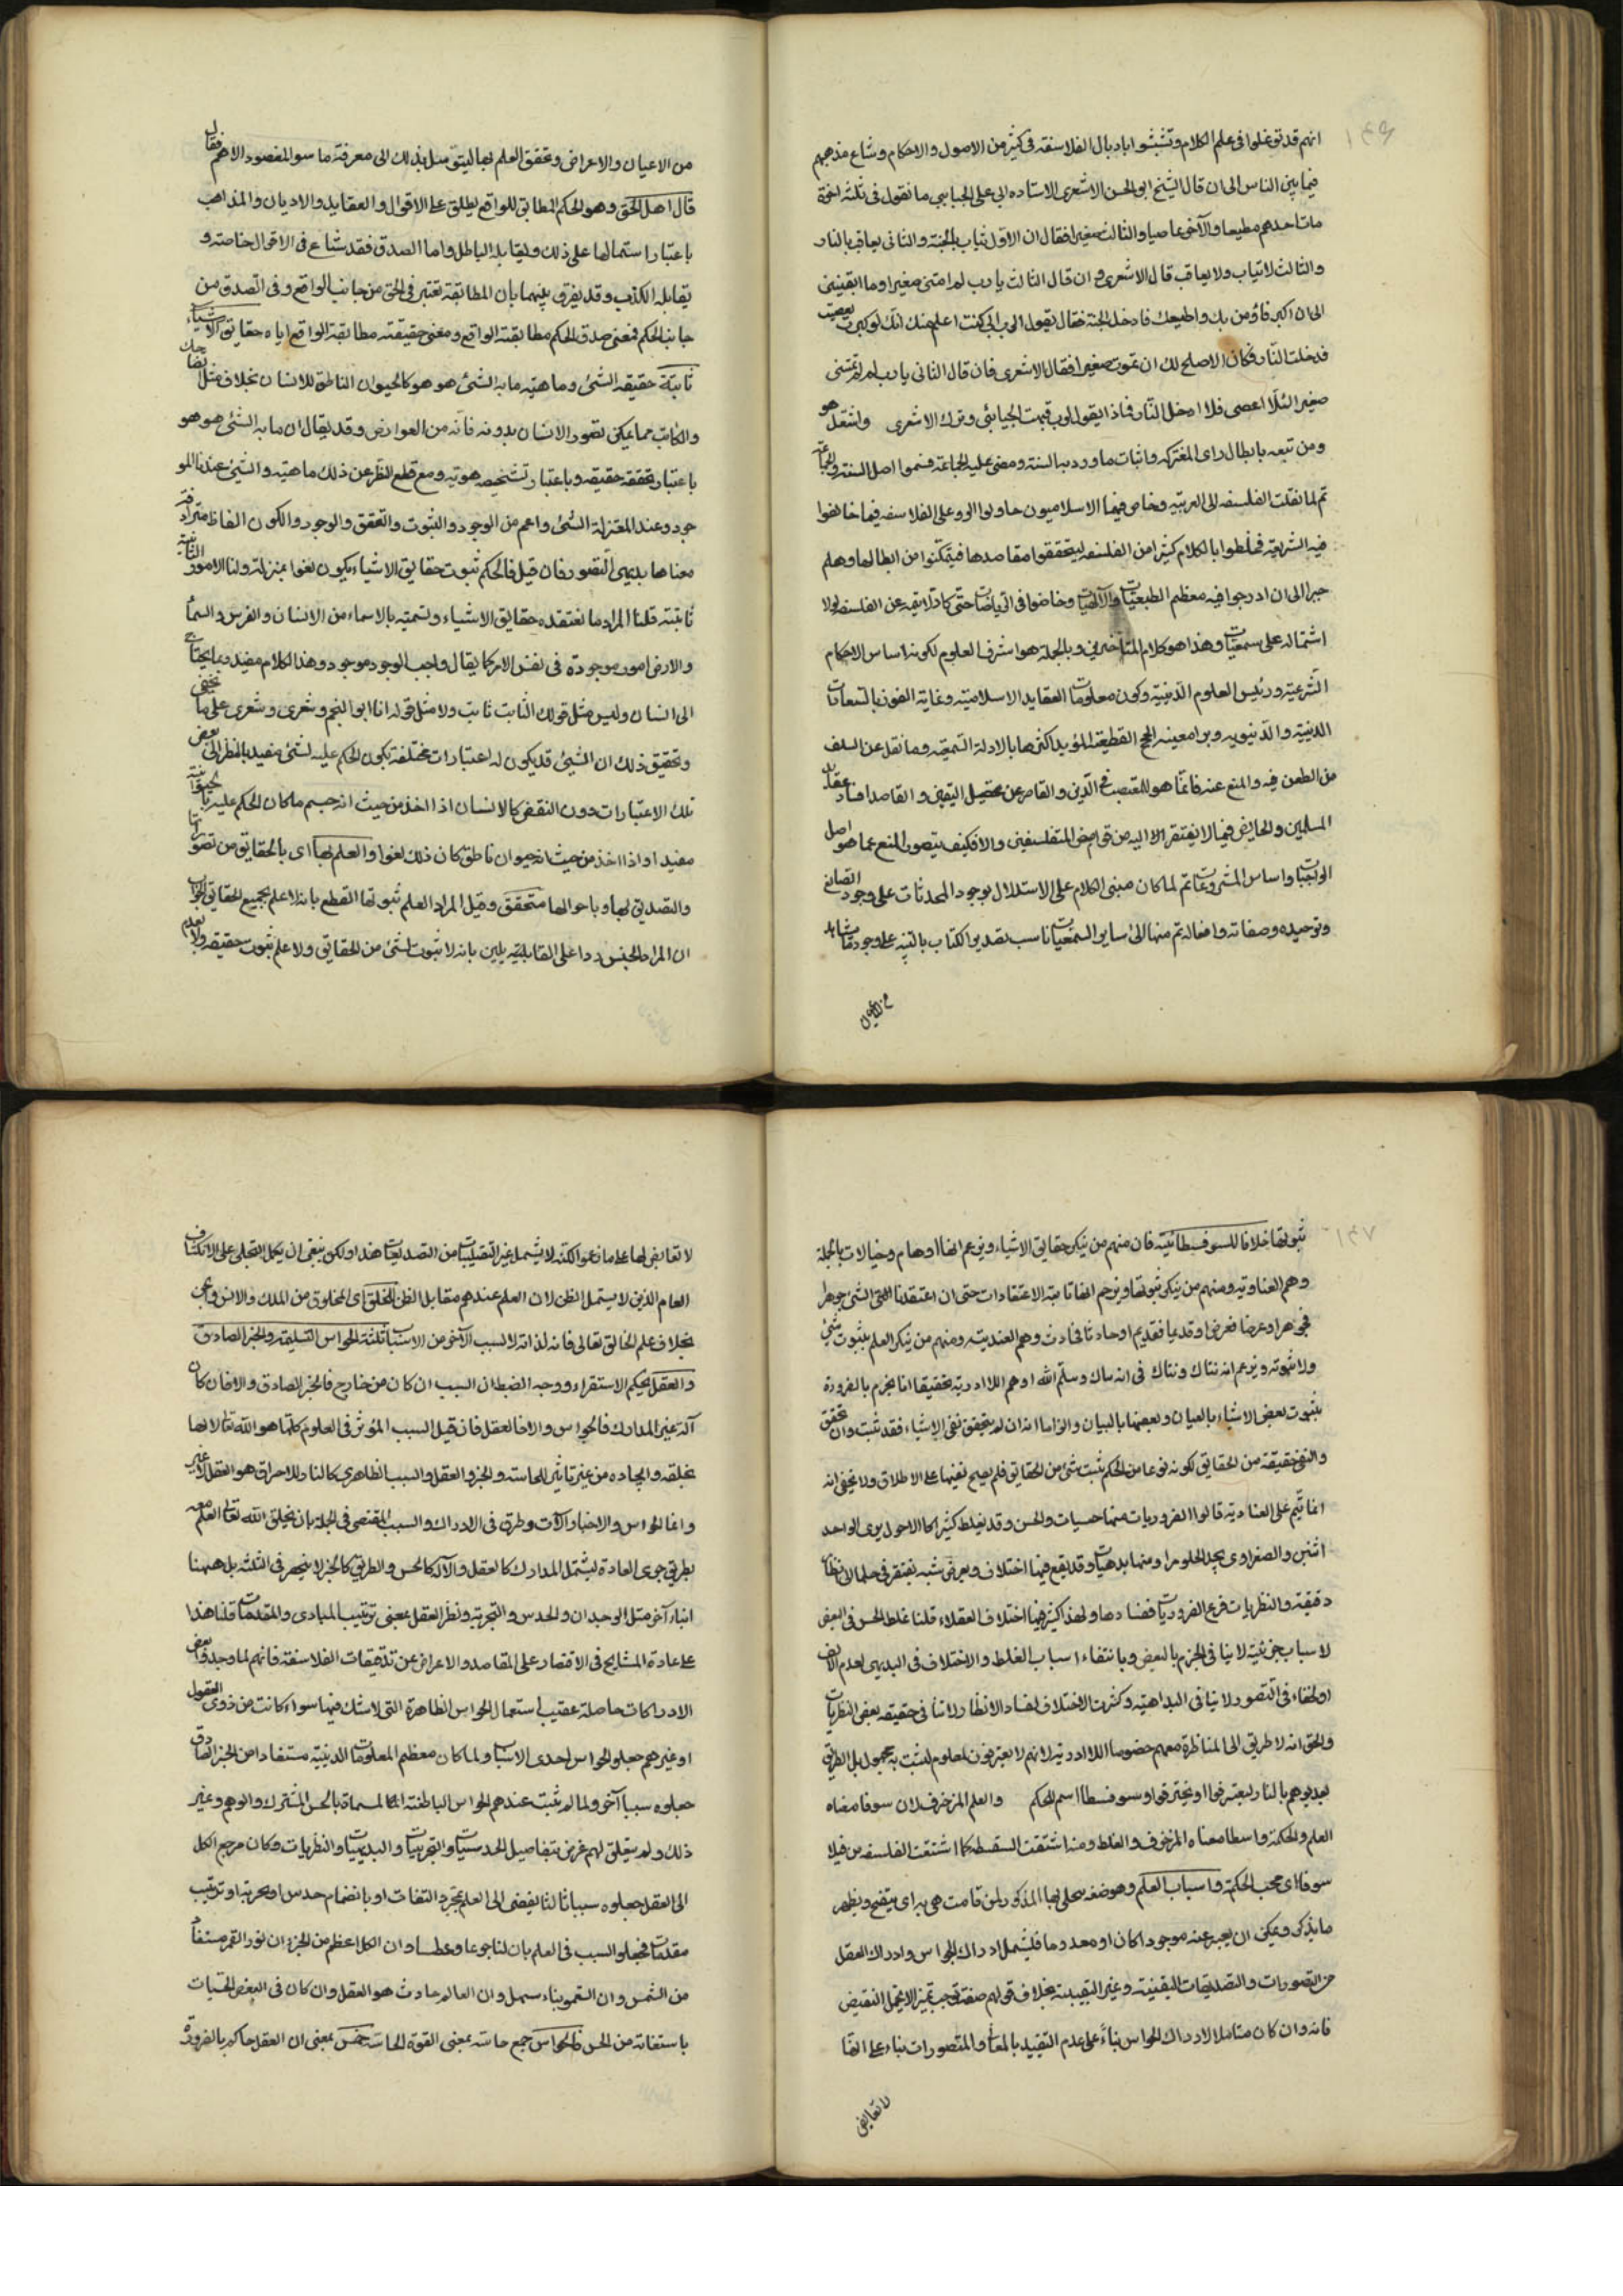 ١٤٦
انهم قد توغلوا فى علم الكلام وتشبثوا باذيال الفلاسفة فى كثير من الاصول والاحكام وشاع مذهبهم
فيما بين الناس الى ان قال الشيخ ابو الحسن الاشعرى لاستاده ابى على الجبايى ما تقول فى ثلثة اخوة
مات احدهم مطيعا والآخر عاصيا والثالث صغيرا فقال ان الاول يثاب بالجنة والثانى يعاقب بالنار
والثالث لا يثاب ولا يعاقب قال الاشعرى ان قال الثالث يا رب لم امتنى صغيرا وما ابقيتنى
الى ان اكبر فاؤمن بك واطيعك فادخل الجنة فقال يقول الرب انى كنت اعلم منك انك لو كبرت لعصيت
فدخلت النار فكان الاصلح لك ان تموت صغيرا فقال الاشعرى فان قال الثانى يا رب لم لم تمتنى
صغيرا لئلا اعصى فلا ادخل النار فماذا يقول الرب فبهت الجبايئى وترك الاشعرى واشتغل هو
ومن تبعه بابطال راى المعتزلة واثبات ما ورد به السنة ومضى عليه الجماعة فسموا اهل السنة والجماعة
ثم لما نقلت الفلسفه الى العربية وخاص فيها الاسلاميون حاولوا الرد على الفلاسفه فيما خالفوا
فيه الشريعة فخلطوا بالكلام كثيرا من الفلسفه ليتحققوا مقاصدها فيتمكنوا من ابطالها وهلم
جرا الى ان ادرجوا فيه معظم الطبعيات والالهيات وخاضوا فى الرياضات حتى كاد لا يتميز عن الفلسفه لولا
اشتماله على سمعيات وهذا هو كلام المتأخرين وبالجملة هو اشرف العلوم لكونه اساس الاحكام
الشرعية ورئيس العلوم الدينية وكون معلومات العقايد الاسلامية وغاية الفوز بالسعادات
الدينية والدنيويه وبراهينه الحجج القطعية المؤيد اكثرها بالادلة السمعية وما نقل عن السلف
من الطعن فيه والمنع عنه فانما هو للمتعصب فى الدين والقاصر عن تحصيل اليقين والقاصد افساد عقايد
المسلمين والخايض فيما لا يفتقر اليه من غوامض المتفلسفين والا فكيف يتصور المنع عما هو اصل
الواجبات واساس المشروعات ثم لما كان مبنى الكلام على الاستدلال بوجود المحدثات على وجود الصانع
وتوحيده وصفاته وافعاله ثم منها الى ساير السمعيات ناسب تصدير الكتاب بالتنبيه على وجود ما يشاهد
من الاعيان
من الاعيان والاعراض وتحقق العلم بها ليتوسل بذلك الى معرفة ما هو المقصود الاهم فقال
قال اهل الحق وهو الحكم المطابق للواقع يطلق على الاقوال والعقايد والاديان والمذاهب
باعتبار اشتمالها على ذلك ويقابله الباطل واما الصدق فقد شاع فى الاقوال خاصة و
يقابله الكذب وقد يفرق بينهما بان المطابقة تعتبر فى الحق من جانب الواقع وفى الصدق من
جانب الحكم فمعنى صدق الحكم مطابقته الواقع ومعنى حقيقته مطابقة الواقع اياه حقايق الاشياء
ثابتة حقيقة الشئ وماهيته ما به الشئ هو هو كالحيوان الناطق للانسان بخلاف مثل الضاحك
والكاتب مما يمكن تصور الانسان بدونه فانه من العوارض وقد يقال ان ما به الشئ هو هو
باعتبار تحققه حقيقه وباعتبار تشخصه هويه ومع قطع النظر عن ذلك ماهية والشئ عندنا المو
جود وعند المعتزلة الشئ واعم من الوجود والثبوت والتحقق والوجود والكون الفاظ مترادفة
معناها بديهى التصور فان قيل فالحكم ثبوت حقايق الاشياء يكون لغوا بمنزلة قولنا الامور الثابتة
ثابتة قلنا المراد ما نعتقده حقايق الاشياء ونسميه بالاسماء من الانسان والفرس والسماء
والارض امور موجودة فى نفس الامر كما يقال واجب الوجود موجود وهذا الكلام مفيد ربما يحتاج
الى البيان وليس مثل قولك الثابت ثابت ولا مثل قوله انا ابو النجم وشعرى وشعرى على ما يخفى
وتحقيق ذلك ان الشئ قد يكون له اعتبارات مختلفة يكون الحكم عليه لشئ مفيد بالنظر الى بعض
تلك الاعتبارات دون النقض كالانسان اذا اخذ من حيث انه جسم ما كان الحكم عليه بالحيوانية
مفيدا واذا اخذ من حيث انه حيوان ناطق كان ذلك لغوا والعلم بها اى بالحقايق من تصوراتها
والتصديق بها وباحوالها متحقق وقيل المراد العلم ثبوتها القطع بانه لا علم بجميع الحقايق والجواب
ان المراد الجنس ردا على القايلين بانه لا ثبوت لشئ من الحقايق ولا علم ثبوت حقيقه ولا بعدم
١٤٧
ثبوتها خلافا للسوفسطائية فان منهم من ينكر حقايق الاشياء ويزعم انها اوهام وخيالات بالجملة
وهم العنادية ومنهم من ينكر ثبوتها ويزعم انها تابعة الاعتقادات حتى ان اعتقدنا الشئ جوهرا
فجوهر او عرضا فعرض او قديما فقديم او حادثا فحادث وهم العندية ومنهم من ينكر العلم بثبوت شئ
ولا ثبوته ويزعم انه شاك وشاك فى انه شاك وهلم وهم اللاادرية تحقيقا انا نجزم بالضرورة
بثبوت بعض الاشياء بالعيان وبعضها بالبيان والزاما انه ان لم يتحقق نفى الاشياء فقد ثبت وان تحقق
والنفى حقيقة من الحقايق لكونه نوعا من الحكم ثبت شئ من الحقايق فلم يصح نفيها على الاطلاق ولا يخفى انه
انما يتم على العنادية قالوا الضروريات منها حسيات والحس وقد يغلط كثيرا كالاحول يرى الواحد
اثنين والصفراوى يجد الحلو مرا ومنها بديهيات وقد يقع فيها اختلاف ويعرض شبه يفتقر فى حلها الى انظار
دقيقة والنظريات فرع الضروريات ففسادها ولهذا كثر فيها اختلاف العقلاء قلنا غلط الحس فى البعض
لاسباب جزئية لا ينافى الجزم بالبعض وبانتفاء اسباب الغلط والاختلاف فى البديهى لعدم الالف
او لخفاء فى التصور لا ينافى البداهة وكثرت الاختلاف لفساد الانظار لا ينافى حقيقة بعض النظريات
والحق انه لا طريق الى المناظرة معهم خصوصا اللاادرية لانهم لا يعترفون بمعلوم ليثبت به مجهول بل الطريق
تعذيبهم بالنار ليعترفوا او يحترقوا وسوفسطا اسم للحكم والعلم المزخرف لان سوفا معناه
العلم والحكمة واسطا معناه المزخرف والغلط ومنه اشتقت السفسطه كما اشتقت الفلسفه من فيلا
سوفا اى محب الحكمة واسباب العلم وهو صفه يتجلى بها المذكور لمن قامت هى به اى يتضح ويظهر
ما يذكر ويمكن ان يعبر عنه موجودا كان او معدوما فيشمل ادراك الحواس وادراك العقل
من التصورات والتصديقات اليقينية وغير اليقينية بخلاف قولهم صفة توجب تميزا لا يحتمل النقيض
فانه وان كان شاملا لادراك الحواس بناء على عدم التقييد بالمعانى والتصورات بناء على انها
لا نقايض
لا نقايض لها على ما زعموا لكنه لا يشمل غير اليقينيات من التصديقات هذا ولكن ينبغى ان يحمل التجلى على الانكشاف
التام الذى لا يشمل الظن لان العلم عندهم مقابل الظن للخلق اى المخلوق من الملك والانس والجن
بخلاف علم الخالق تعالى فانه لذاته لا لسبب الآخر من الاسباب ثلثة الحواس السليمة والخبر الصادق
والعقل بحكم الاستقراء ووجه الضبط ان السبب ان كان من خارج فالخبر الصادق والا فان كان
آلة غير المدارك فالحواس والا فالعقل فان قيل السبب المؤثر فى العلوم كلها هو الله تعالى لانها
بخلقه وايجاده من غير تاثير للحاسة والخبر والعقل والسبب الظاهرى كالنار للاحراق هو العقل لا غير
وانما الحواس والاخبار آلات وطرق فى الادراك والسبب المفضى فى الجملة بان يخلق الله تعالى العلم معه
بطريق جرى العادة ليشتمل المدارك كالعقل والآلة كالحس والطريق كالخبر لا ينحصر فى الثلثة بل ههنا
اشياء آخر مثل الوجدان والحدس والتجربة ونظر العقل بمعنى ترتيب المبادى والمقدمات قلنا هذا
على عادة المشايخ فى الاقتصار على المقاصد والاعراض عن تدقيقات الفلاسفة فانهم لما وجدوا بعض
الادراكات حاصلة عقيب استعمال الحواس الظاهرة التى لا شك فيها سواء كانت من ذوى العقول
او غيرهم جعلوا الحواس احدى الاسباب ولما كان معظم المعلومات الدينية مستفادا من الخبر الصادق
جعلوه سببا آخر ولما لم يثبت عندهم الحواس الباطنة المسماة بالحس المشترك والوهم وغير
ذلك ولم يتعلق لهم غرض بتفاصيل الحدسيات والتجربيات والبديهيات والنظريات وكان مرجع الكل
الى العقل جعلوه سببا ثالثا يفضى الى العلم بمجرد التفات او بانضمام حدس او تجربة او ترتيب
مقدمات فجعلوا السبب فى العلم بان لنا جوعا وعطشا وان الكل اعظم من الجزء وان نور القمر مستفاد
من الشمس وان السقمونياء مسهل وان العالم حادث هو العقل وان كان فى البعض الحسيات
باستعانة من الحس فالحواس جمع حاسة بمعنى القوة الحاسة خمس بمعنى ان العقل حاكم بالضرورة